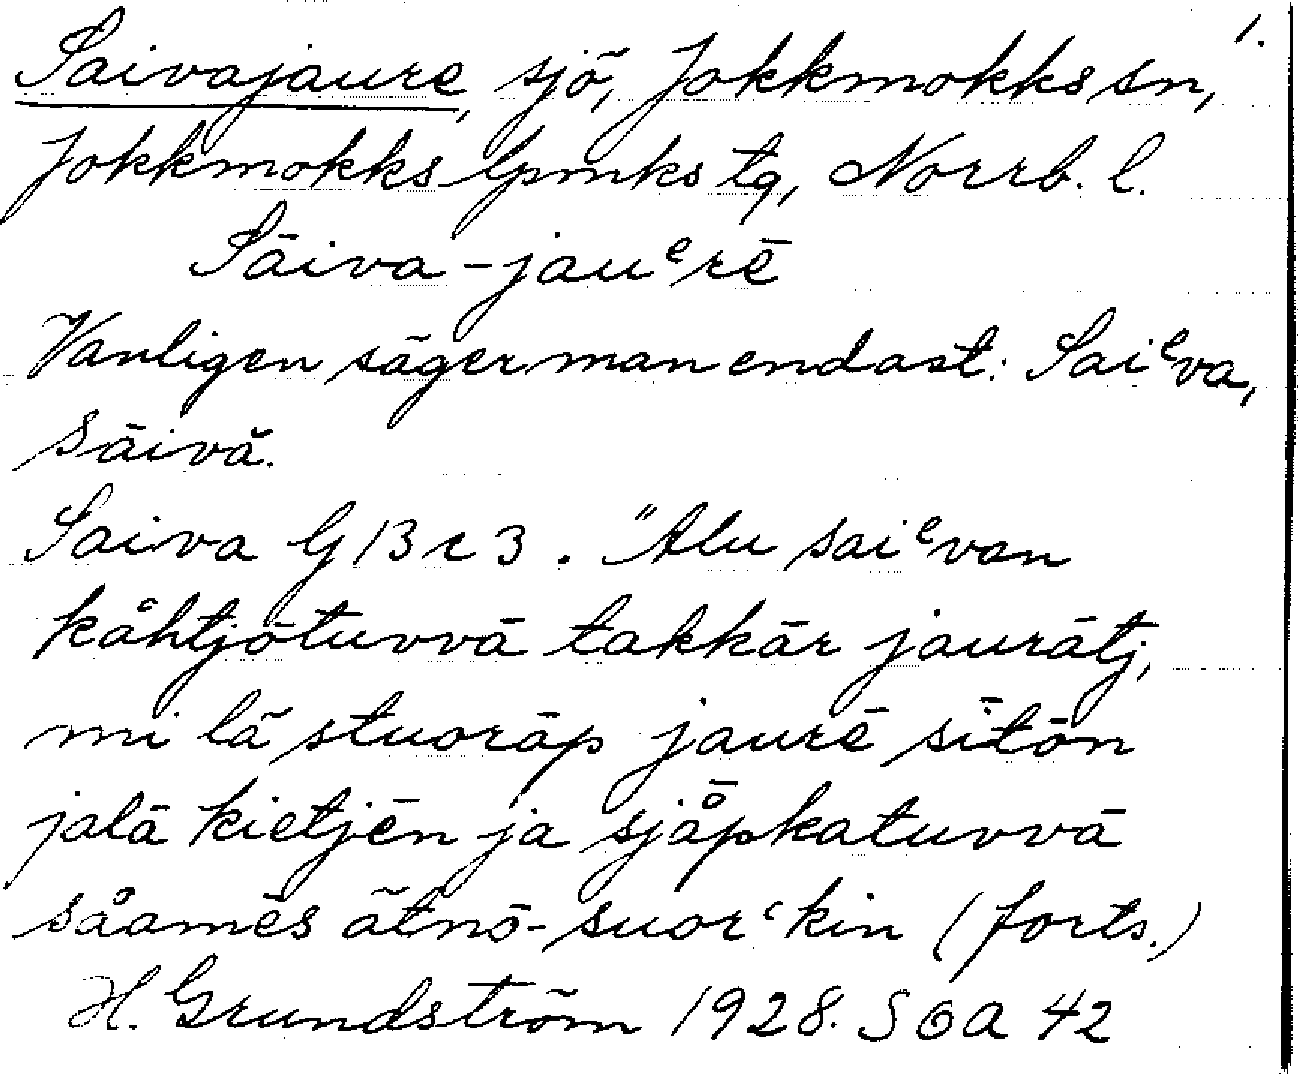 1.
Saivajaure, sjö, Jokkmokks sn,
Jokkmokks lpmks tg, Norrb. l.
Sāiva-jauᵉrē
Vanligen säger man endast: Saiᵉva,
sāivă.
Saiva G 13 c 3. "Alu saiᵉvan
kåhtjōtuvvā takkār jaurātj,
mi lä stuorāp jaurē sītōn
jalā kietjēn ja sjåpkatuvvā
såamēs ätnō-suorʿkin (forts.)
H. Grundström 1928. SOA 42